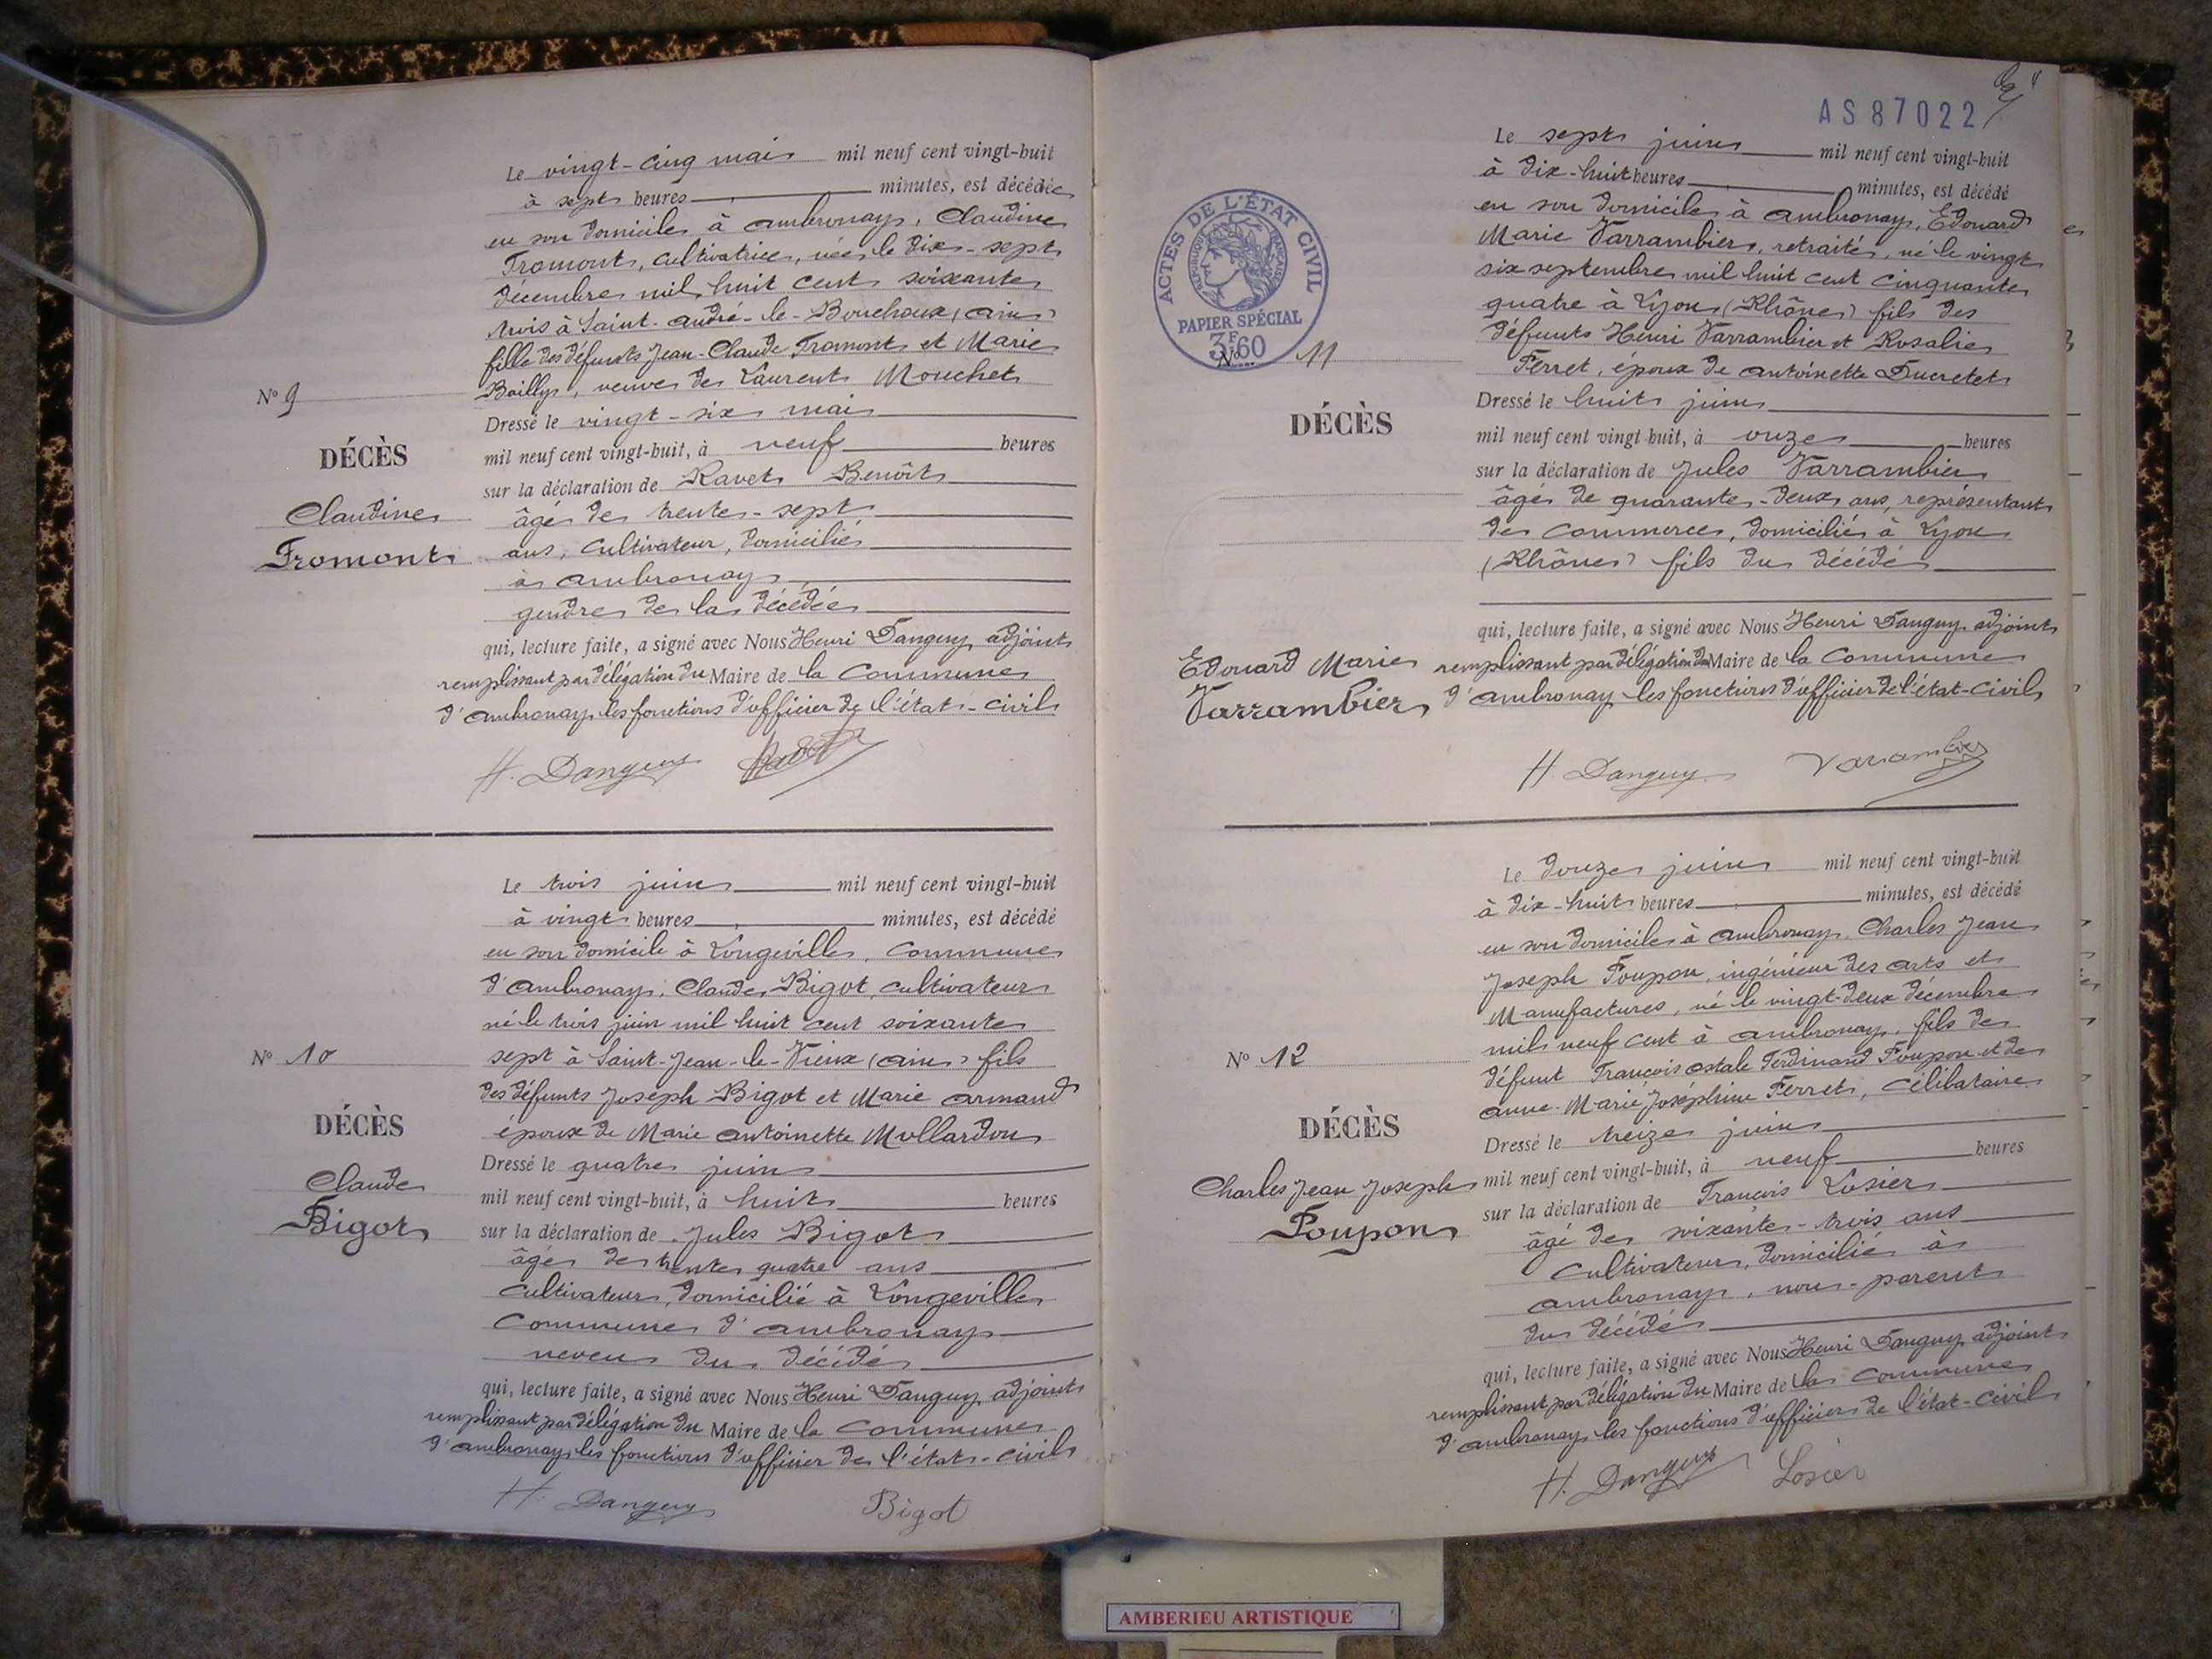 Le vingt-cinq mai mil neuf cent vingt-huit
à sept heures minutes, est décédée
en son domicile à Ambronay, Claudine
Fromont, cultivatrice, née le dix-sept
décembre mil huit cent soixante
trois à Saint-André-le-Bouchoux (Ain)
fille des défunts Jean-Claude Fromont et Marie
Bailly, veuve de Laurent Mouchet
Nº 9
Dressé le vingt-six mai
mil neuf cent vingt-huit, à neuf heures
DÉCÈS
sur la déclaration de Ravet Benoît
Claudine
âgé de trente-sept
Fromont
ans, cultivateur, domicilié
à Ambronay
gendre de la décédée
qui, lecture faite, a signé avec Nous Henri Danguy adjoint
remplissant par délégation du Maire de la Commune
d'Ambronay les fonctions d'officier de l'état-civil
H. Danguy
Le trois juin mil neuf cent vingt-huit
à vingt heures minutes, est décédé
en son domicile à Longeville, Commune
d'Ambronay, Claude Bigot, cultivateur
né le trois juin mil huit cent soixante
Nº 10
sept à Saint-Jean-le-Vieux (Ain) fils
des défunts Joseph Bigot et Marie Armand
DÉCÈS
époux de Marie Antoinette Mollardon
Dressé le quatre juin
Claude
mil neuf cent vingt-huit, à huit heures
Bigot
sur la déclaration de Jules Bigot
âgé de trente quatre ans
cultivateur, domicilié à Longeville
Commune d'Ambronay
neveu du décédé
qui, lecture faite, a signé avec Nous Henri Danguy adjoint
remplissant par délégation du Maire de la Commune
d'Ambronay les fonctions d'officier de l'état-civil
H. Danguy Bigot
AS87022
Le sept juin mil neuf cent vingt-huit
à dix-huit heures minutes, est décédé
en son domicile à Ambronay, Edouard
Marie Varrambier, retraité, né le vingt
six septembre mil huit cent cinquante
quatre à Lyon (Rhône) fils des
défunts Henri Varrambier et Rosalie
Ferret, époux de Antoinette Ducretet
ACTES DE L'ÉTAT CIVIL
RÉPUBLIQUE FRANÇAISE
PAPIER SPÉCIAL
3F60
Nº 11
Dressé le huit juin
DÉCÈS
mil neuf cent vingt-huit, à onze heures
sur la déclaration de Jules Varrambier
âgé de quarante-deux ans, représentant
de commerce, domicilié à Lyon
(Rhône) fils du décédé
qui, lecture faite, a signé avec Nous Henri Danguy adjoint
Edouard Marie
remplissant par délégation du Maire de la Commune
Varrambier
d'Ambronay les fonctions d'officier de l'état-civil
H. Danguy Varrambier
Le douze juin mil neuf cent vingt-huit
à dix-huit heures minutes, est décédé
en son domicile à Ambronay, Charles Jean
Joseph Poupon, ingénieur des arts et
Manufactures, né le vingt-deux décembre
mil neuf cent à Ambronay, fils de
Nº 12
défunt François Ferdinand Poupon et de
Anne-Marie Joséphine Ferret, célibataire
DÉCÈS
Dressé le treize juin
mil neuf cent vingt-huit, à neuf heures
Charles Jean Joseph
Poupon
sur la déclaration de François Losier
âgé de soixante-trois ans
cultivateur, domicilié à
Ambronay, non-parent
du décédé
qui, lecture faite, a signé avec Nous Henri Danguy adjoint
remplissant par délégation du Maire de la Commune
d'Ambronay les fonctions d'officier de l'état-civil
H. Danguy Losier
AMBERIEU ARTISTIQUE